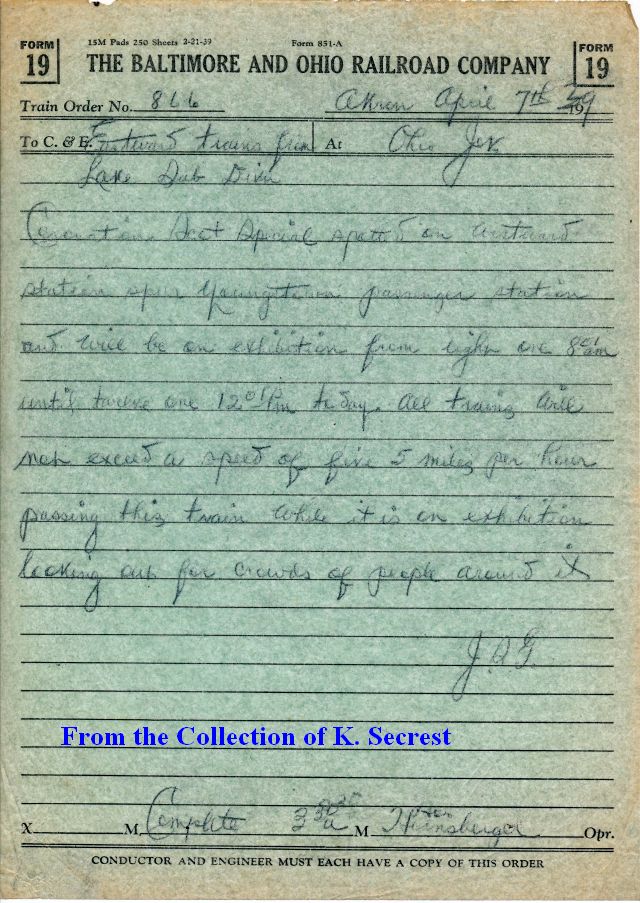 15M Pads 250 Sheets 2-21-39 Form 851-A
FORM 19 THE BALTIMORE AND OHIO RAILROAD COMPANY FORM 19
Train Order No. 866 Akron April 7th 1939
To C. & E. Eastward trains from At Ohio Jct
Lake Sub Divn
Coronation Scot Special spotted on westward
station spur Youngstown passenger station
and will be on exhibition from eight one 801 am
until twelve one 1201 Pm today. All trains will
not exceed a speed of five 5 miles per hour
passing this train while it is on exhibition
looking out for crowds of people around it
From the Collection of K. Secrest
X M. Complete M Opr.
CONDUCTOR AND ENGINEER MUST EACH HAVE A COPY OF THIS ORDER